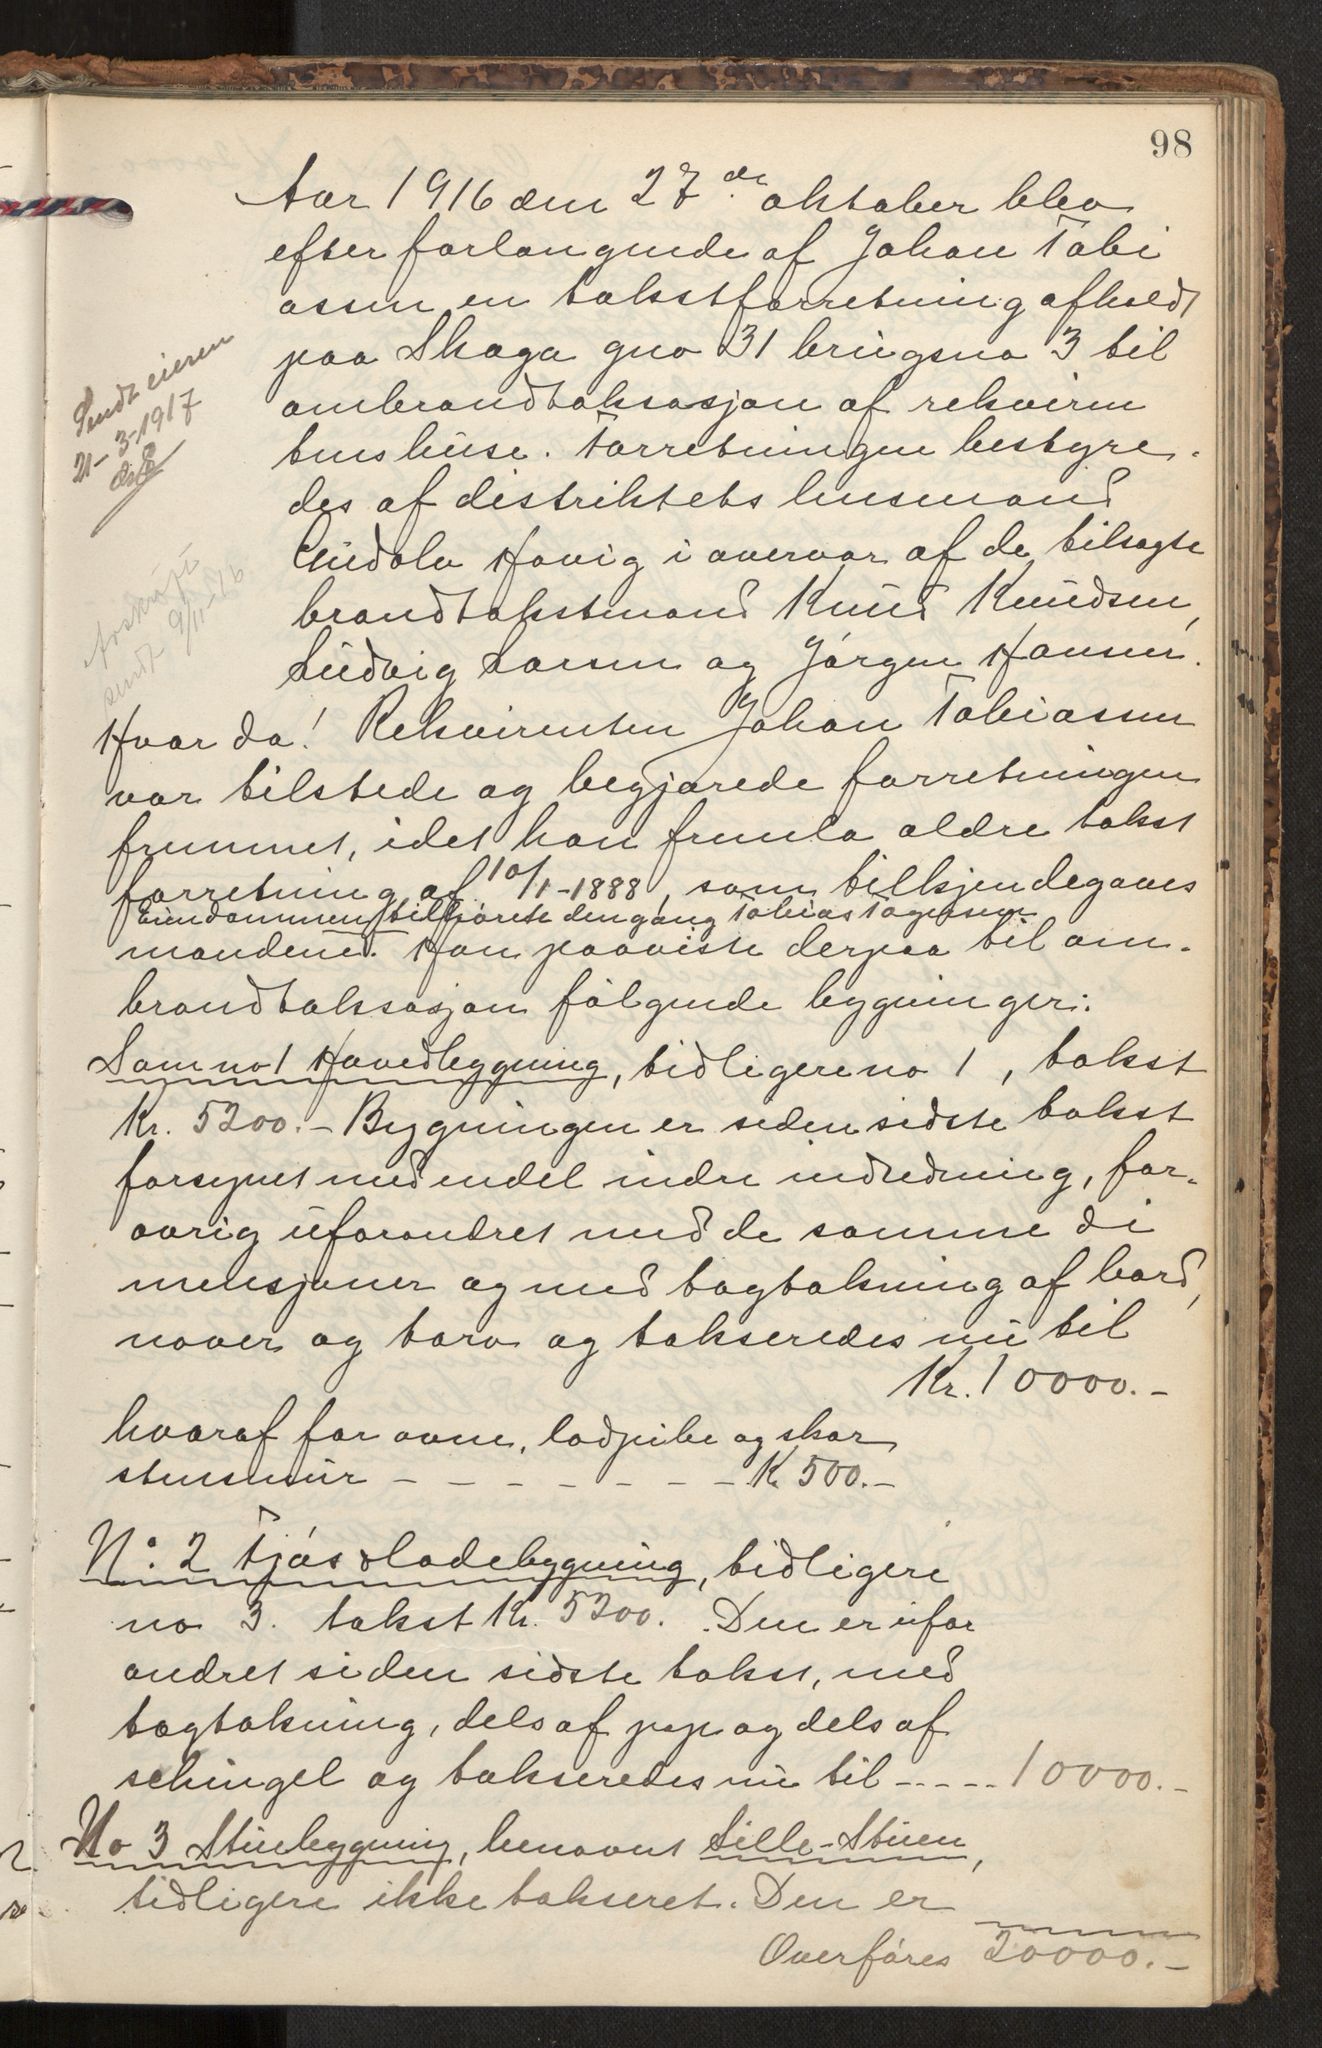 98
Aar 1916 den 27de oktober blev
efter forlangende af Johan Tobi
assen en takstforretning afholdt
paa Skaga gno 31 brugsno 3 til
ombrandtaksasjon af rekviren
tens huse. Forretningen bestyre-
des af distriktets lensmand
Gudolv Hovig i overvær af de tilsagte
brandtakstmænd Knud Knudsen,
Ludvig Larsen og Jørgen Hansen.
Sendt eieren
21-3-1917
Avskrift
sendt 9/11-16
Hvor da! Rekvirenten Johan Tobiassen
var tilstede og begjærede forretningen
fremmet, idet han fremla ældre takst
forretning af 10/1-1888, som tilkjendegaves
Eiendommen tilhørte dengang Tobias
mændene. Han paaviste derpaa til om-
brandtaksasjon følgende bygninger:
Som no 1 Hovedbygning, tidligere no 1, takst
Kr. 5200.- Bygningen er siden sidste takst
forsynet med endel indre indredning, for-
øvrig uforandret med de samme di
mensjoner og med tagtækning af bord,
næver og torv og takseredes nu til
Kr. 10000.-
hvoraf for ovne, ladpibe og skor
stensmur - - - - - - - K. 500.-
No. 2 Fjøs & ladebygning, tidligere
no 3. takst Kr. 5200. Den er ufor
andret siden sidste takst, med
tagtækning, dels af pap og dels af
schingel og takseredes nu til ----- 10000.-
No 3 Stuebygning, benævnt Lille-Stuen,
tidligere ikke takseret. Den er
Overføres 20000.-